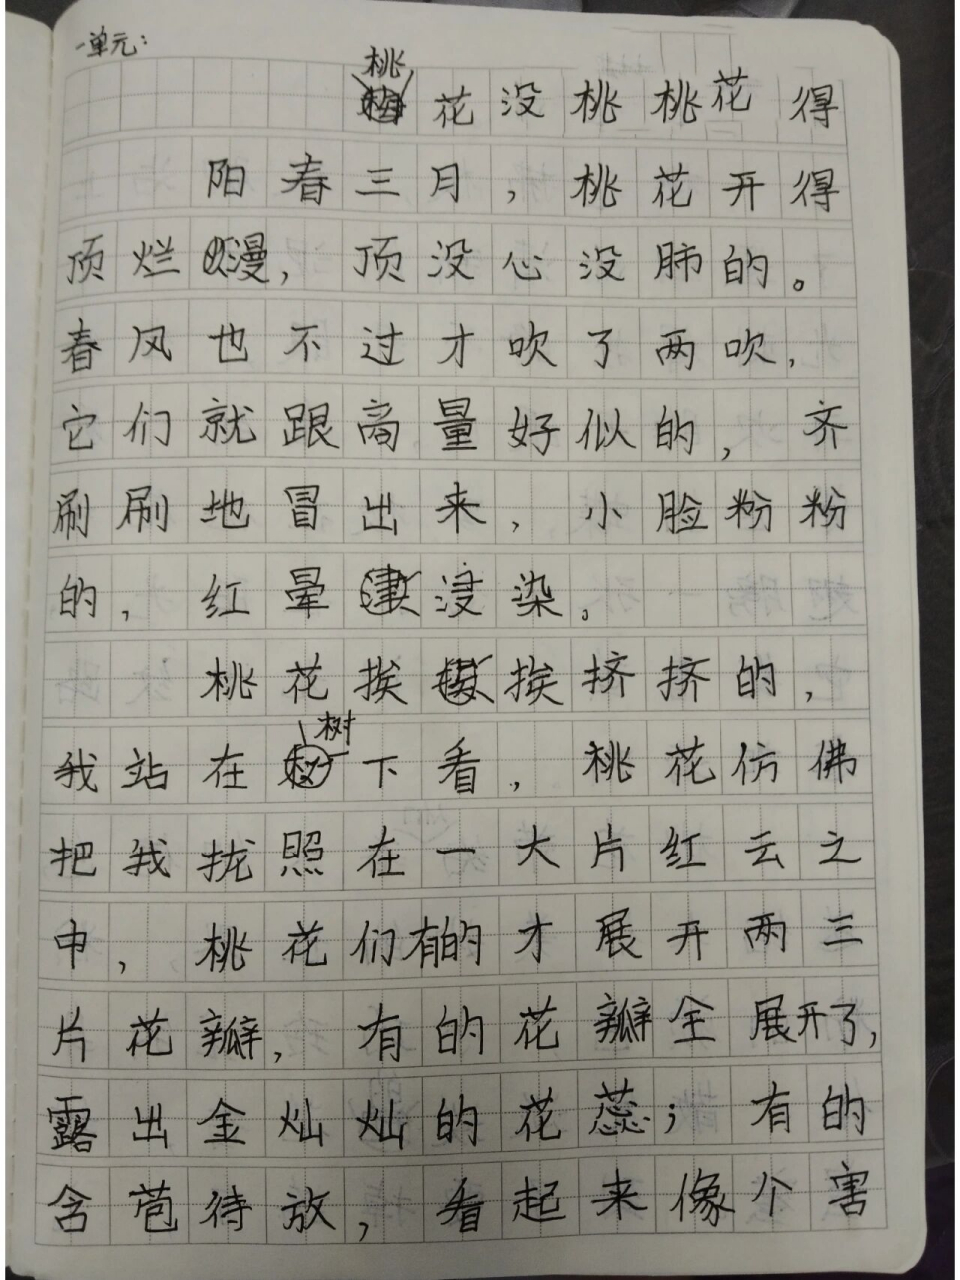 一单元:
桃花没桃桃花得
阳春三月，桃花开得
顶烂漫，顶没心没肺的。
春风也不过才吹了两吹，
它们就跟商量好似的，齐
刷刷地冒出来，小脸粉粉
的，红晕浸染。
桃花挨挨挤挤的，
我站在树下看，桃花仿佛
把我拢照在一大片红云之
中，桃花们有的才展开两三
片花瓣，有的花瓣全展开了，
露出金灿灿的花蕊；有的
含苞待放，看起来像个害